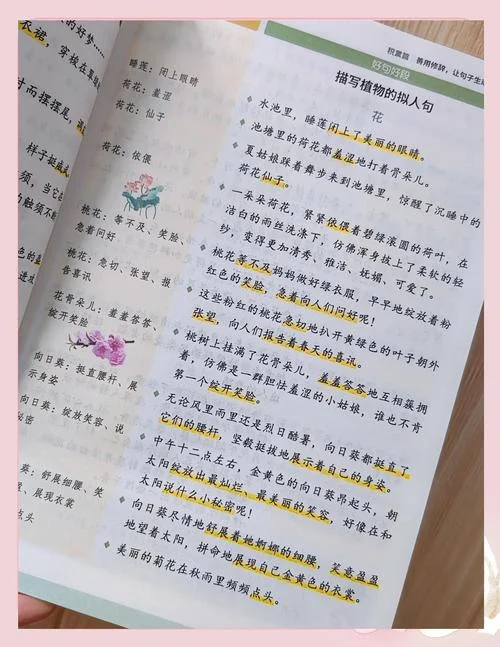 的好梦……
衣裙，穿梭在
时而摆摆尾，
样子挺
须，当它
的触须不
睡莲：闭上眼睛
荷花：羞涩
荷花：仙子
荷花：依偎
桃花：等不及、笑脸、
急着问好
桃花：急切、张望、报
告喜讯
花骨朵儿：羞羞答答、
绽开笑脸
向日葵：挺直腰杆、展
示身姿
向日葵：绽放笑容、说
秘密
：舒展细腰、笑
、展现衣裳
点头
积累篇 善用修辞，让句子生动
好句好段
描写植物的拟人句
花
水池里，睡莲闭上了美丽的眼睛。
池塘里的荷花都羞涩地打着骨朵儿。
夏姑娘踩着舞步来到池塘里，惊醒了沉睡中的
荷花仙子。
一朵朵荷花，紧紧依偎着碧绿滚圆的荷叶，在
洁白的雨丝洗涤下，仿佛浑身披上了柔软的轻
纱，变得更加清秀、雅洁、妩媚、可爱了。
桃花等不及妈妈做好绿衣服，早早地绽放着粉
红色的笑脸，急着向人们问好呢！
这些粉红的桃花急切地扒开黄绿色的叶子朝外
张望，向人们报告着春天的喜讯。
桃树上挂满了花骨朵儿，羞羞答答地互相簇拥
着，仿佛是一群胆怯羞涩的小姑娘，谁也不肯
第一个绽开笑脸。
无论风里雨里还是烈日酷暑，向日葵都挺直了
它们的腰杆，坚毅挺拔地展示着自己的身姿。
中午十二点左右，金黄色的向日葵昂起头，朝
太阳绽放出最灿烂、最美丽的笑容，好像在和
太阳说什么小秘密呢！
向日葵尽情地舒展着她婀娜的细腰，笑意盈盈
地望着太阳，拼命地展现自己金黄色的衣裳。
美丽的菊花在秋雨里频频点头。